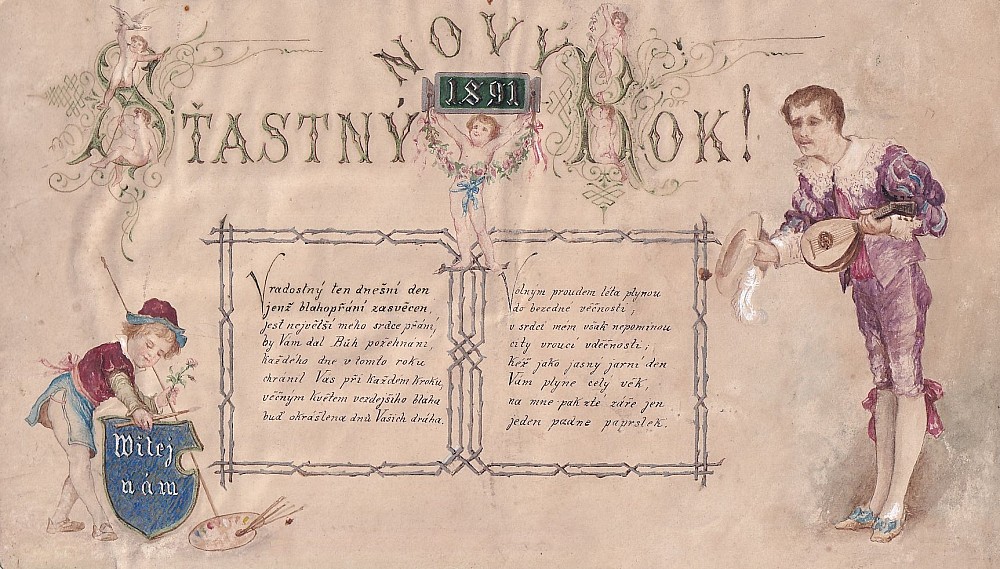 NOVÝ
1891
ŠŤASTNÝ ROK!
V radostný ten dnešní den
jenž blahopřání zasvěcen,
jest největší meho srdce přání,
by Vám dal Bůh požehnaní,
každého dne v tomto roku
chránil Vas při každém kroku,
věčným květem vezdejšího blaha
buď okrášlena dnů Vašich dráha.
Volnym proudem léta plynou
do bezedne věčnosti;
v srdci mem však nepominou
city vroucí vděčnosti;
Kéž jako jasný jarní den
Vám plyne celý věk,
na mne pak zté záře jen
jeden padne paprslek.
Witej
nám